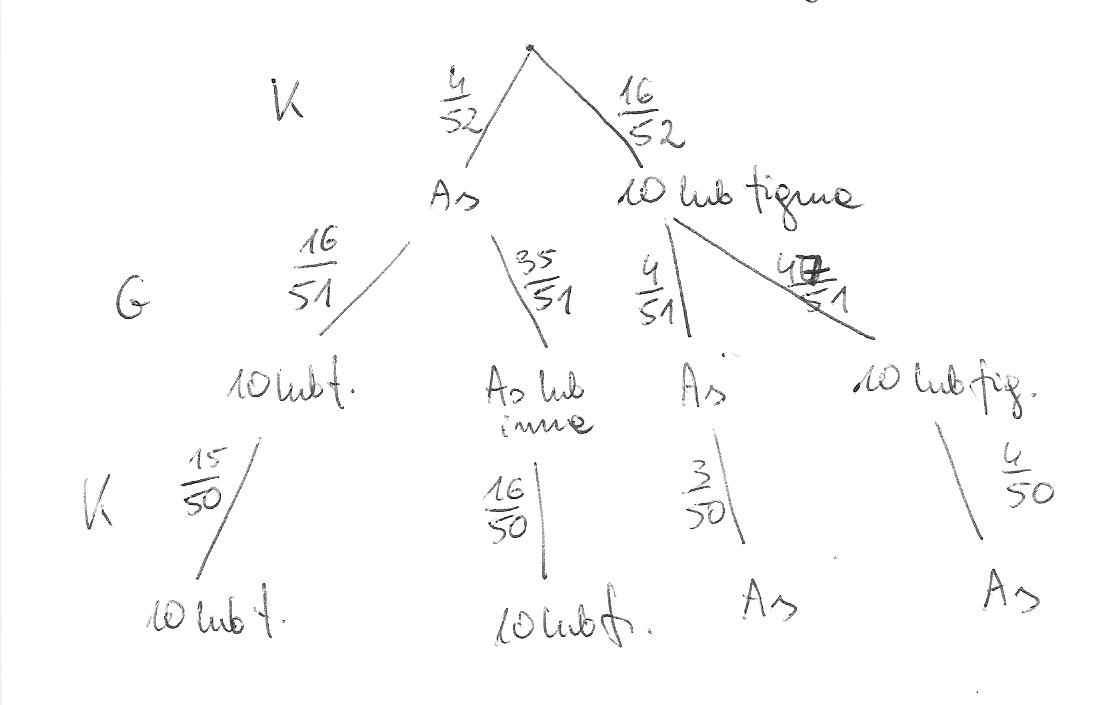 K 4/52 16/52
As 10 lub figura
G 16/51 35/51 4/51 47/51
10 lub f. As lub As 10 lub fig.
inne
K 15/50 16/50 3/50 4/50
10 lub f. 10 lub f. As As